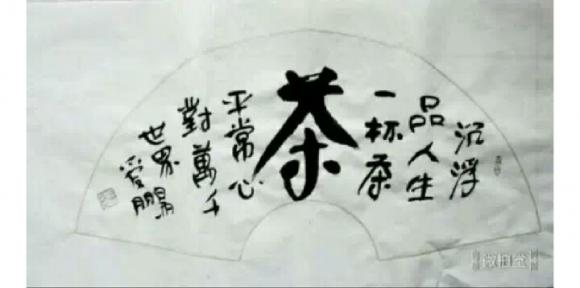 沉浮
品人生
一杯茶
茶
平常心
對萬千
世界
爱鵬